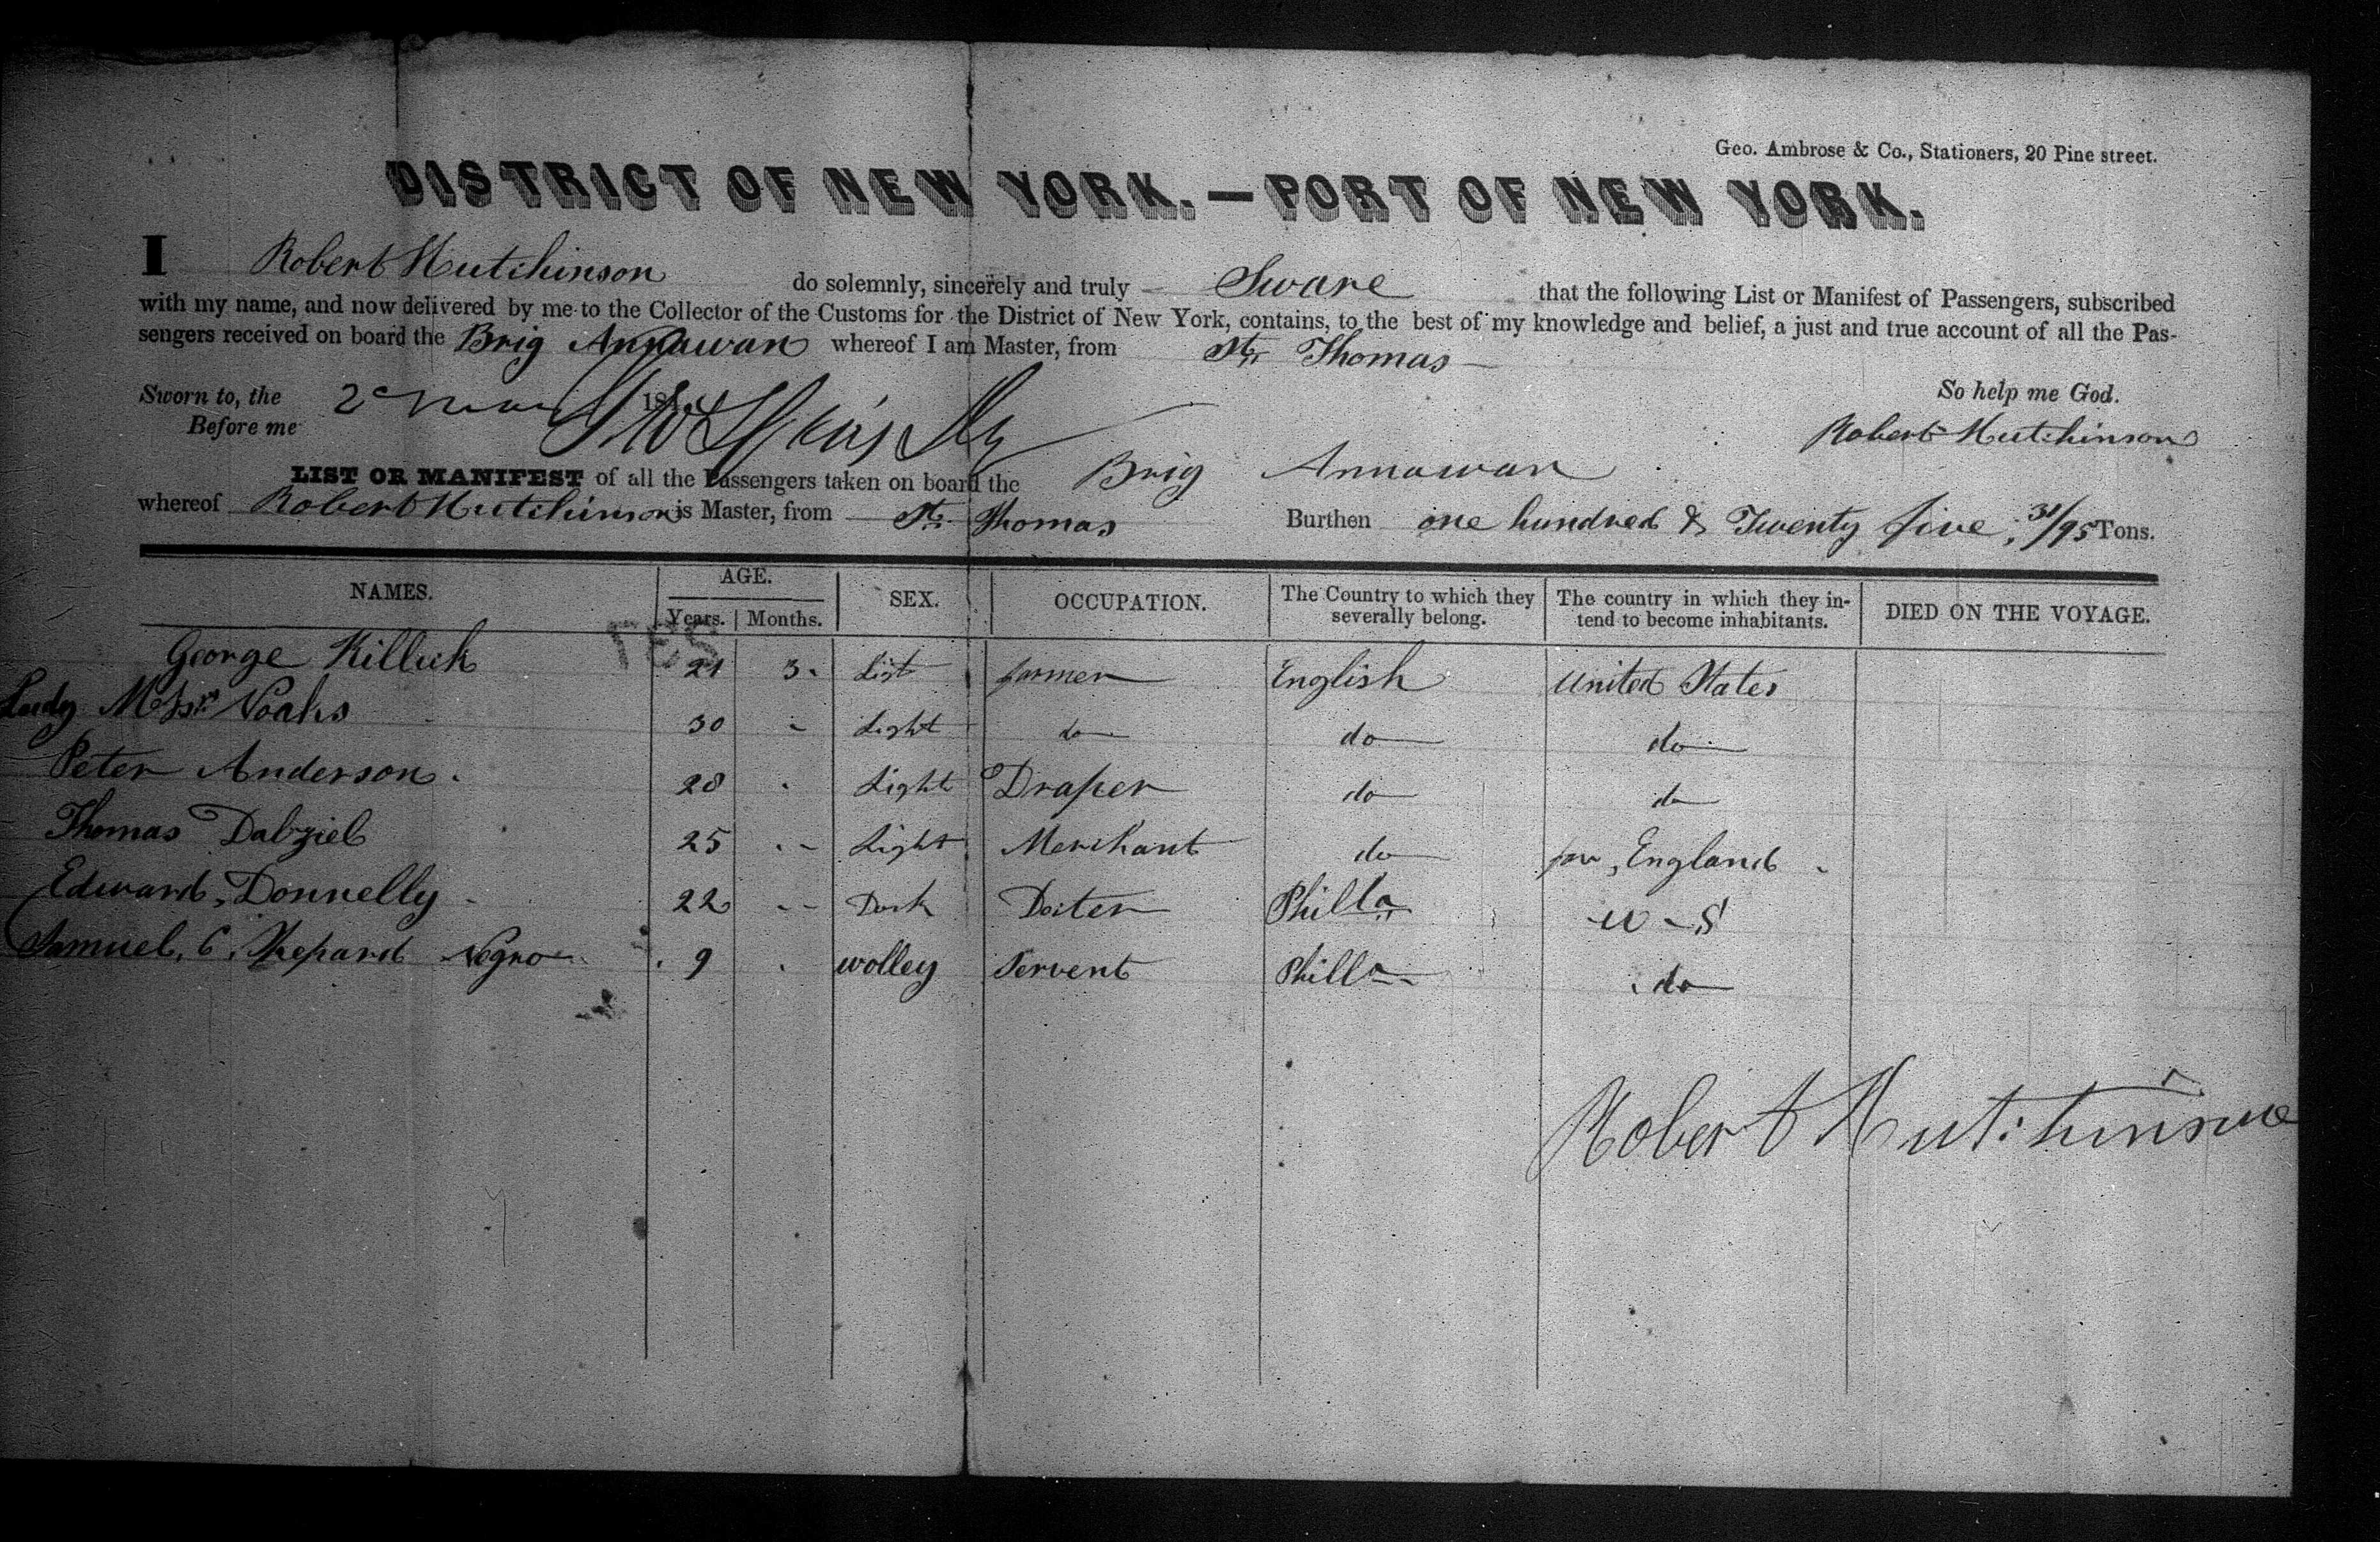 Geo. Ambrose & Co., Stationers, 20 Pine street.
DISTRICT OF NEW YORK.—PORT OF NEW YORK.
I Robert Hutchinson do solemnly, sincerely and truly Sware that the following List or Manifest of Passengers, subscribed
with my name, and now delivered by me to the Collector of the Customs for the District of New York, contains, to the best of my knowledge and belief, a just and true account of all the Pas-
sengers received on board the Brig Annawan whereof I am Master, from St. Thomas
So help me God.
Sworn to, the 2 18
Before me
Robert Hutchinson
LIST OR MANIFEST of all the Passengers taken on board the Brig Annawan
whereof Robert Hutchinson is Master, from St. Thomas Burthen one hundred & Twenty five 31/95 Tons.
NAMES. AGE. Years. Months. SEX. OCCUPATION. The Country to which they severally belong. The country in which they in-tend to become inhabitants. DIED ON THE VOYAGE.
George Killick 21 3 Light farmer English United States
Lady Noaks 30 - Light do do do
Peter Anderson. 28 Light Draper do do
Thomas Dalziel 25 - Light Merchant do for England
Edward Donnelly 22 - - Dark Philla U-S
Samuel C. Shepard Negro 9 wolley Servent Philla do
Robert Hutchinson